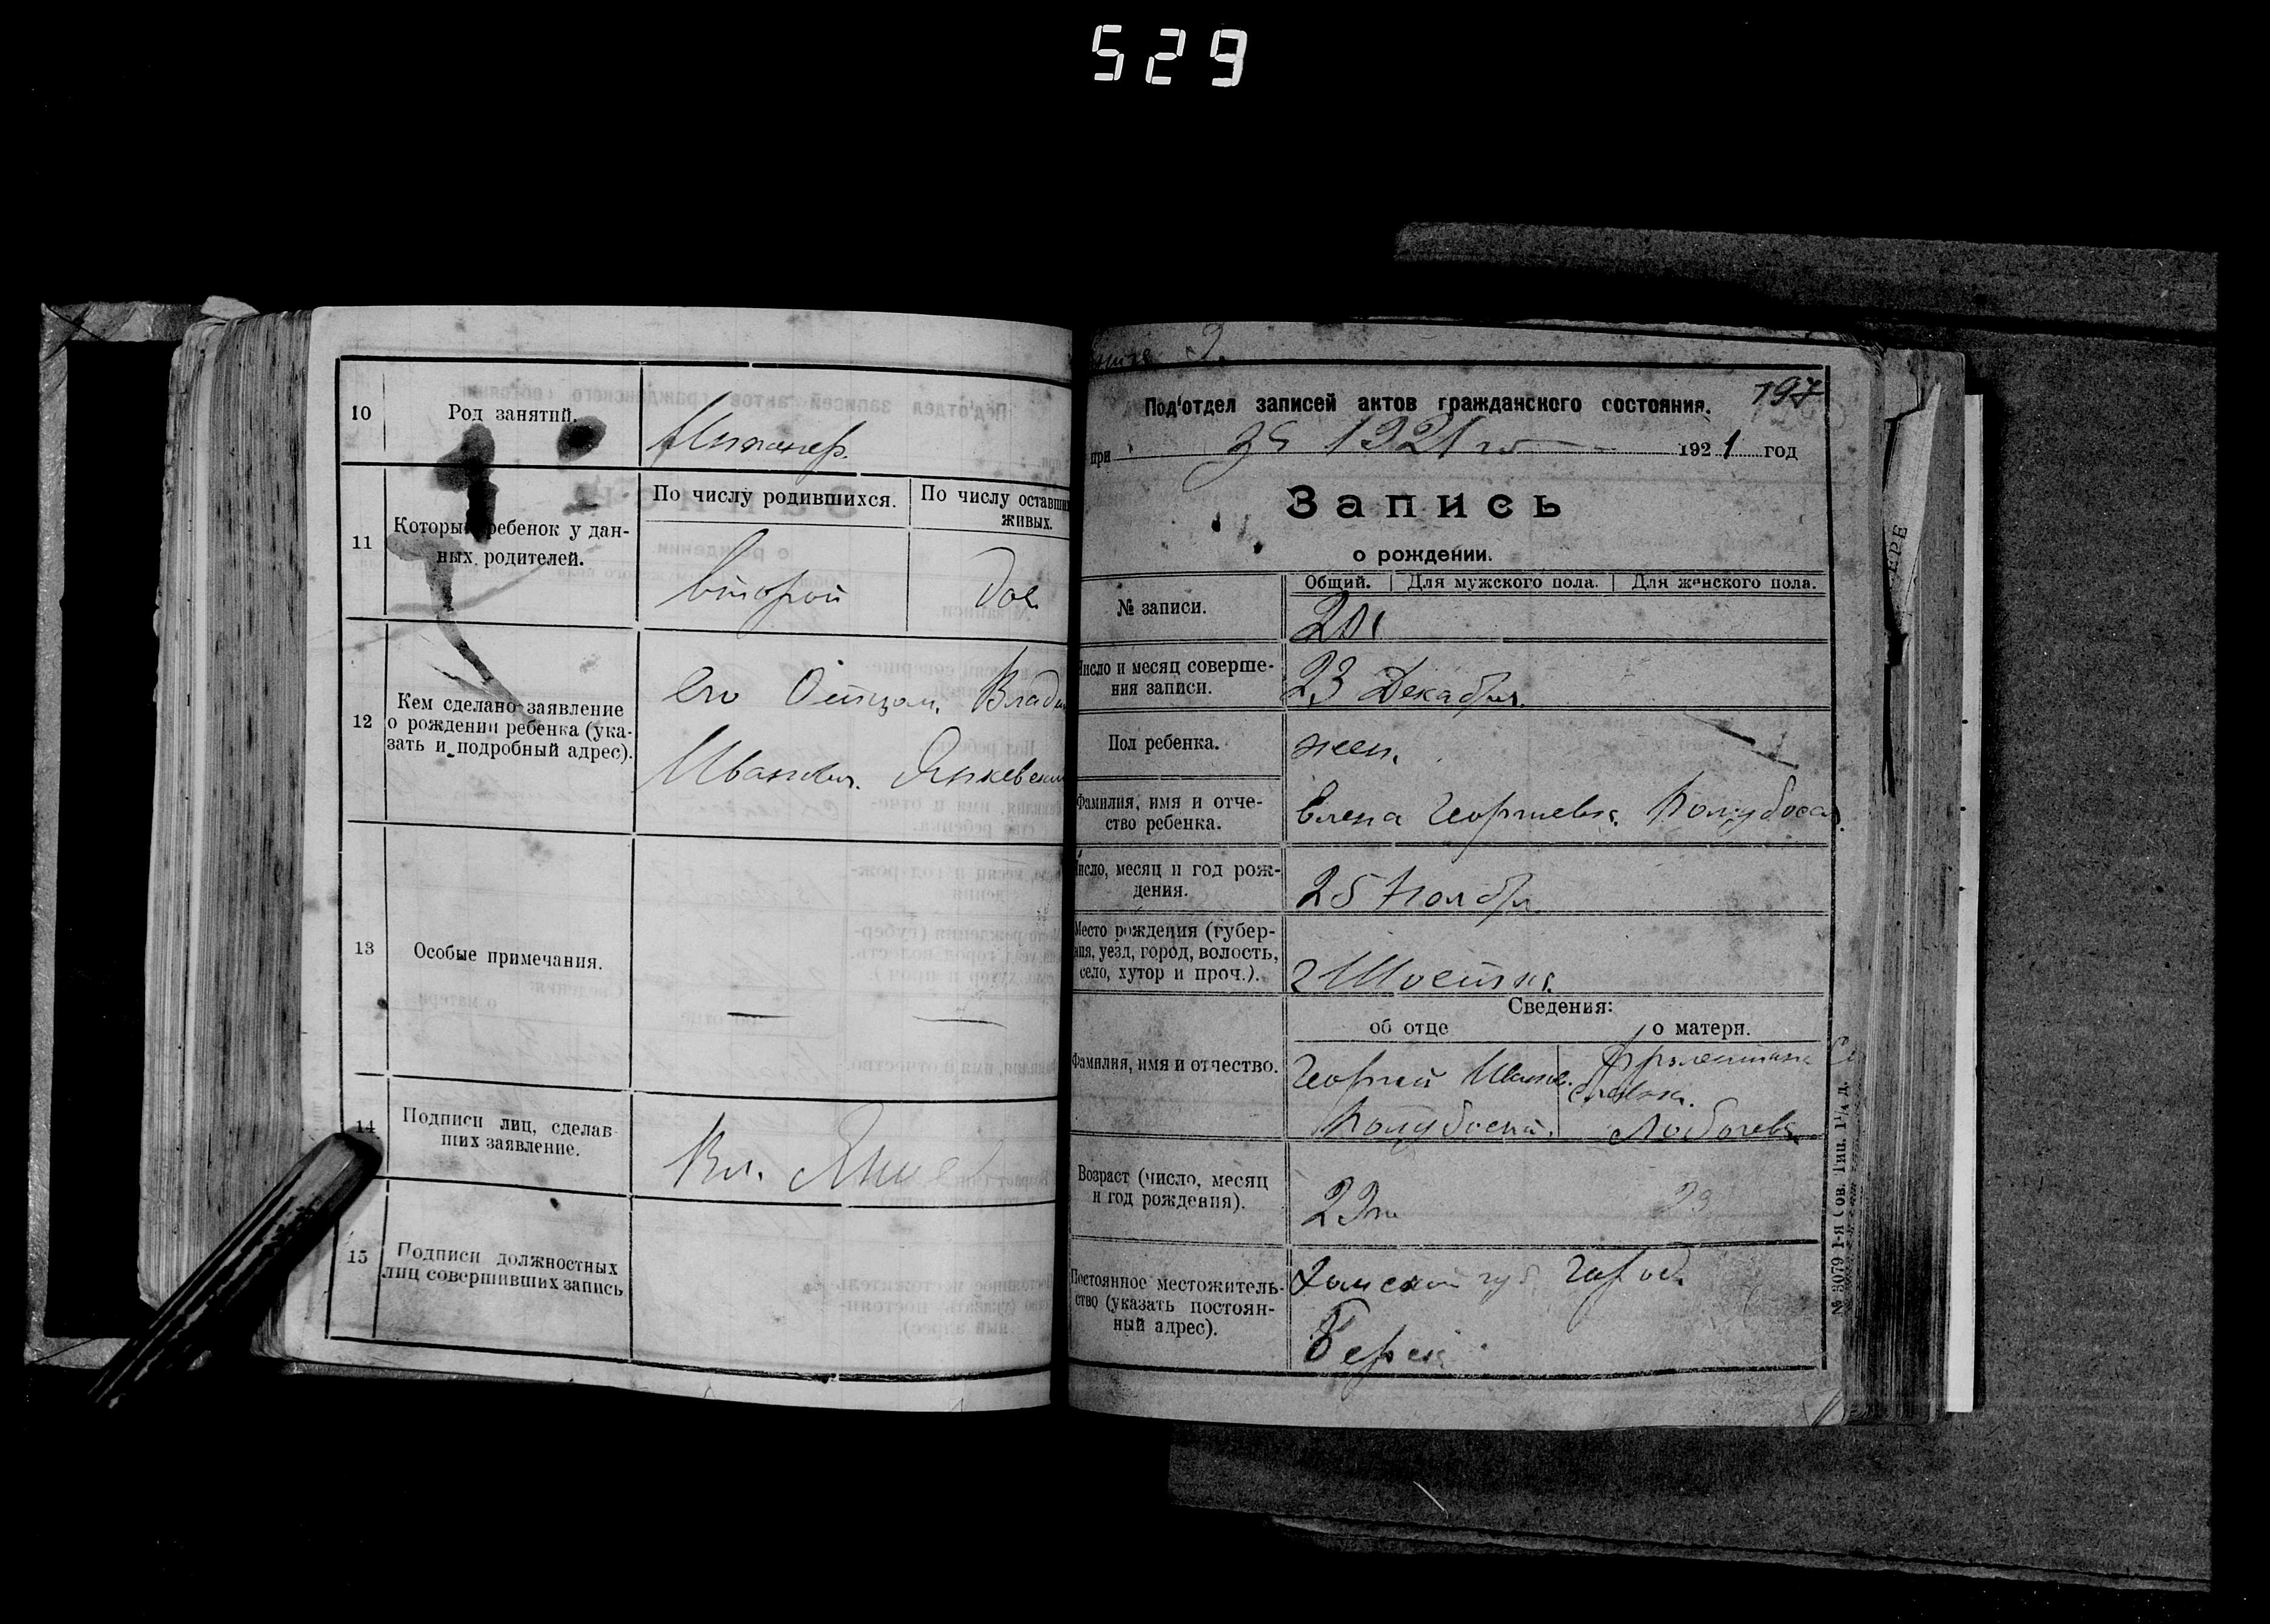 529
10 Род занятий. Инженер.
11 Который ребенок у дан-
ных родителей.
По числу родившихся. По числу оставших
живых.
второй двое
12 Кем сделано заявление
о рождении ребенка (ука-
зать и подробный адрес).
его Отцом, Влади
Иванович. Янкевский
13 Особые примечания.
14 Подписи лиц, сделав-
ших заявление.
Вл.
15 Подписи должностных
лиц совершивших запись
197
Под'отдел записей актов гражданского состояния.
при за 1921 го 1921 год
Запись
о рождении.
Общий. Для мужского пола. Для женского пола.
№ записи. 201
Число и месяц соверше-
ния записи.
23 Декабря.
Пол ребенка. жен.
Фамилия, имя и отче-
ство ребенка.
Елена Георгиевн.
Число, месяц и год рож-
дения.
25 Ноября
Место рождения (губер-
ния, уезд, город, волость,
село, хутор и проч.).
г Шостка.
Сведения:
об отце о матери.
Фамилия, имя и отчество.
Георгий Иванов.
Возраст (число, месяц
и год рождения).
23 23
Постоянное местожитель-
ство (указать постоян-
ный адрес).
губ город
№ 3079 1-я Сов. Тип. 1¼ д.